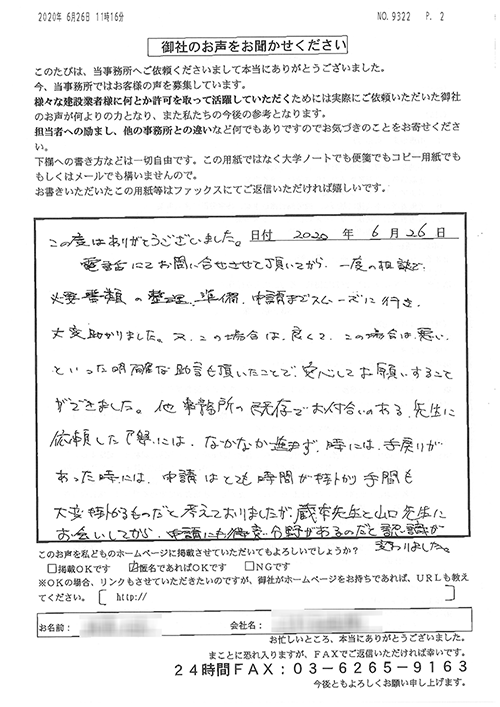 2020年 6月26日 11時16分 NO. 9322 P. 2
御社のお声をお聞かせください
このたびは、当事務所へご依頼くださいまして本当にありがとうございました。
今、当事務所ではお客様の声を募集しています。
様々な建設業者様に何とか許可を取って活躍していただくためには実際にご依頼いただいた御社
のお声が何よりの力となり、また私たちの今後の参考となります。
担当者への励まし、他の事務所との違いなど何でもありですのでお気づきのことをお寄せくださ
い。
下様への書き方などは一切自由です。この用紙ではなく大学ノートでも便箋でもコピー用紙でも
もしくはメールでも構いませんので。
お書きいただいたこの用紙等はファックスにてご返信いただければ嬉しいです。
この度はありがとうございました。 日付 2020 年 6 月 26 日
電話にてお問い合せさせて頂いてから、一度の相談で、
必要書類の整理、準備、申請までスムーズに行き、
大変助かりました。又、この場合は、良くて、この場合は、悪い、
といった明確な助言も頂いたことで、安心してお願いすること
ができました。他事務所の既存でお付合いのある、先生に
依頼した際には、なかなか進まず、時には、手戻りが
あった時には、申請はとても時間が掛かり手間も
大変掛かるものだと考えておりましたが、蔵本先生と山口先生に
お会いしてから、申請にも得意分野があるのだと認識が
変わりました。
このお声を私どものホームページに掲載させていただいてもよろしいでしょうか？
□掲載OKです ☑匿名であればOKです □NGです
※OKの場合、リンクもさせていただきたいのですが、御社がホームページをお持ちであれば、URLも教え
てください。 [ http:// ]
お名前： 会社名：
お忙しいところ、本当にありがとうございました。
まことに恐れ入りますが、FAXでご返信いただければ幸いです。
24時間FAX：03-6265-9163
今後ともよろしくお願い申し上げます。